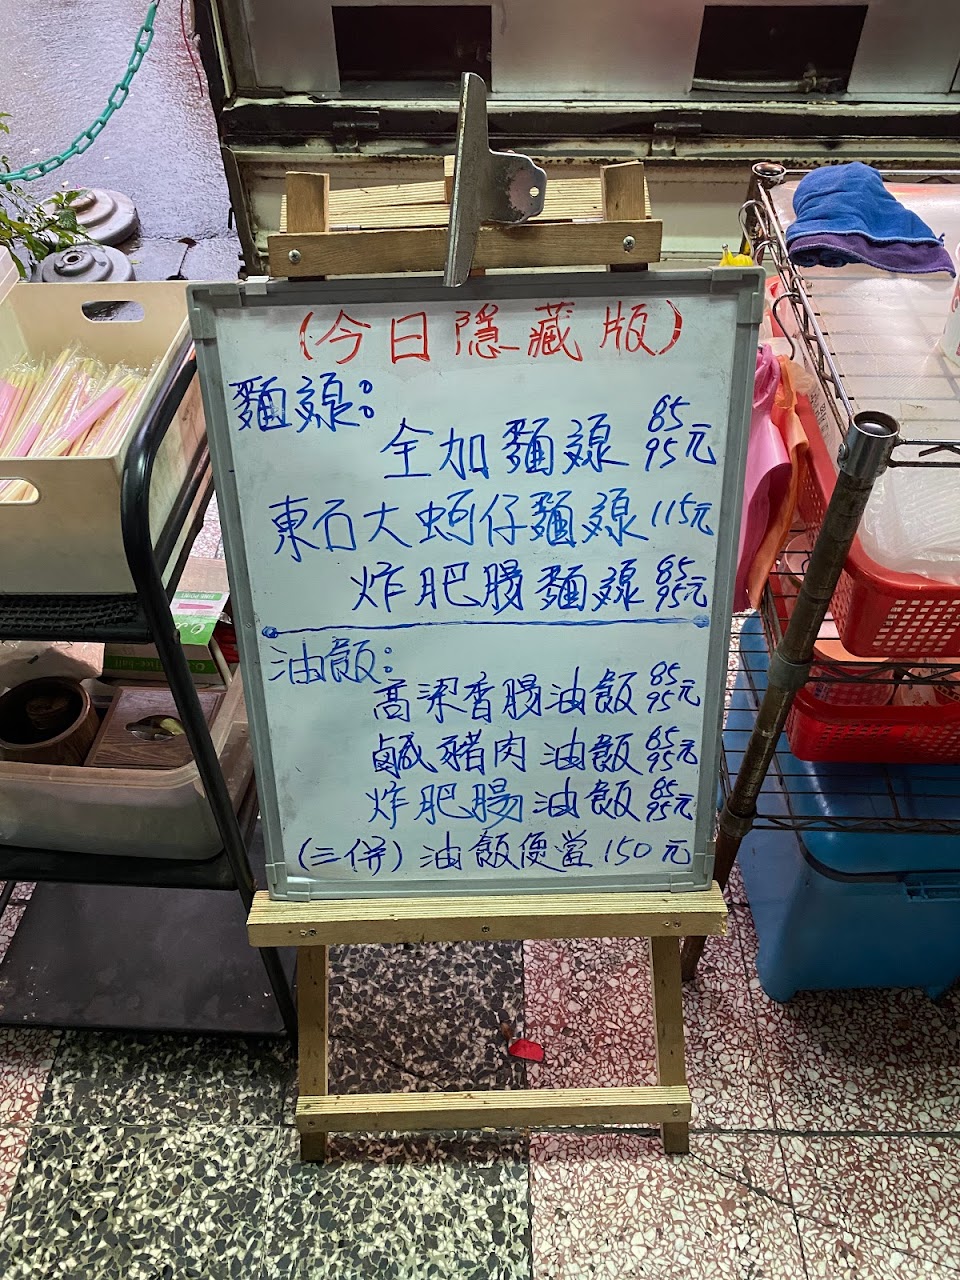 (今日隱藏版)
麵線:
全加麵線 85 95元
東石大蚵仔麵線 115元
炸肥腸麵線 85 95元
油飯:
高粱香腸油飯 85 95元
鹹豬肉油飯 85 95元
炸肥腸油飯 85 95元
(三併)油飯便當 150元